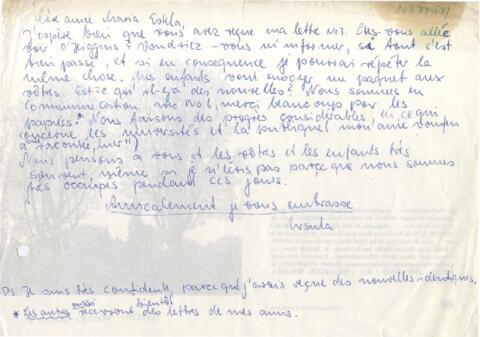 Chère amie Maria Estela,
J'espère bien que vous avez reçue ma lettre No3. Êtes-vous allée
voir O'Higgins? Voudriez-vous m'informer, si tout s'est
bien passé, et si en consequence je pourrai répéter la
même chose. Mes enfants vont envoyer un paquet aux
vôtres. Est-ce qu'il y a des nouvelles? Nous sommes en
communication avec No1, merci beaucoup pour les
papiers.* Nous faisons des progrès considerables en ce qui
concerne les universités et la
a racontée, hier")
Nous pensons à vous et les vôtres et les enfants très
souvent, même si je n'écris pas parce que nous sommes
très occupés pendant ces jours.
Amicalement je vous embrasse
Ursula
Ps. Je suis très confidente, parce que j'avais reçue des nouvelles identiques.
* Les autres aussi recevront bientôt des lettres de mes amis.